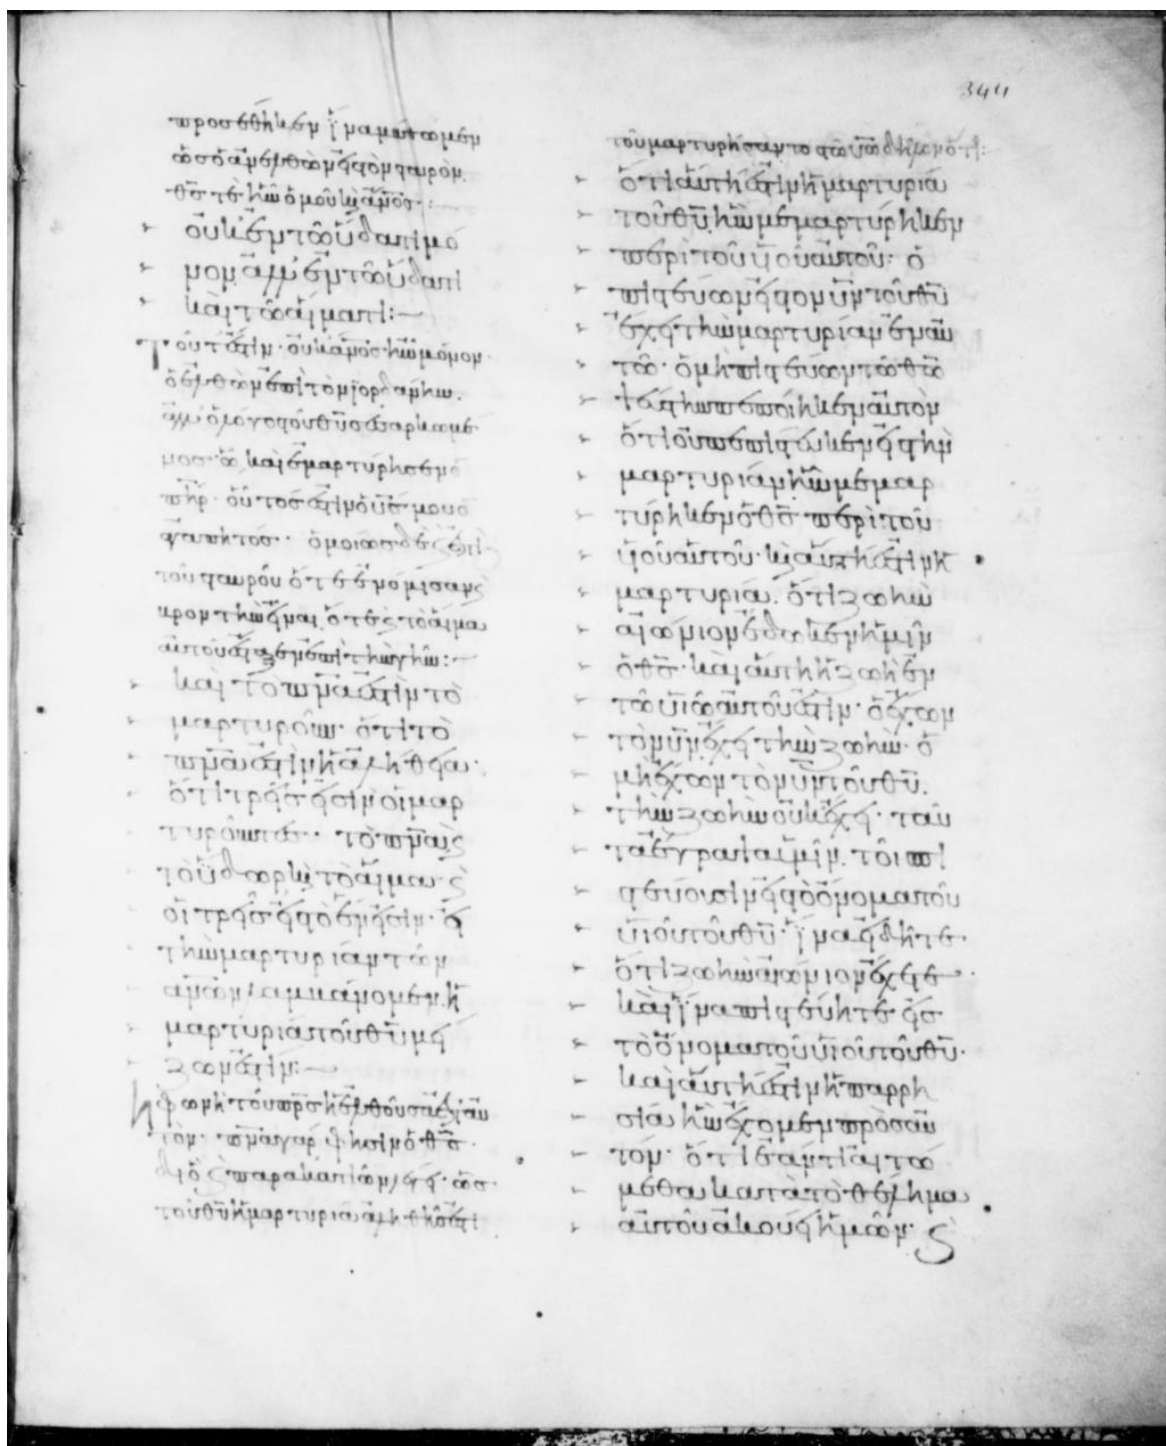 344
προσέθηκεν ἵνα μάθωμεν
ὡς ὁ ἀνελθὼν εἰς τὸν σταυρὸν
θ̅ς τὲ ἦν ὁμοῦ καὶ ἄνο̅ς:
οὐκ ἐν τῶ ὕδατι μό
νον ἀλλ' ἐν τῶ ὕδατι
καὶ τῶ αἵματι:
Τουτέστιν· οὐκ ἄνο̅ς ἦν μόνον
ὁ ἐλθὼν ἐπὶ τὸν ἰορδάνην.
ἀλλ' ὁ λόγος τοῦ θ̅υ ὁ σαρκωμέ
νος· ὧ καὶ ἐμαρτύρησεν ὁ
π̅ηρ· οὗτός ἐστιν ὁ υ̅ς μου ὁ
ἀγαπητός· ὁμοίως δὲ καὶ ἐπὶ
τοῦ σταυροῦ ὅτε ἐνόμισαν
κρον τὴν εἶναι ὅτε καὶ τὸ αἷμα
αὐτοῦ ἔσταζεν ἐπὶ τὴν γῆν:
καὶ τὸ π̅να ἐστὶν τὸ
μαρτυροῦν· ὅτι τὸ
π̅να ἐστὶν ἡ ἀλήθεια·
ὅτι τρεῖς εἰσὶν οἱ μαρ
τυροῦντες· τὸ π̅να καὶ
τὸ ὕδωρ καὶ τὸ αἷμα· καὶ
οἱ τρεῖς εἰς τὸ ἕν εἰσιν· εἰ
τὴν μαρτυρίαν τῶν
ἀν̅ων λαμβάνομεν. ἡ
μαρτυρία τοῦ θ̅υ μεί
ζων ἐστίν:
Ἡ φωνὴ τοῦ π̅ρς ἡ ἐλθοῦσα ἐπ' αὐ
τόν· π̅να γάρ φησιν ὁ θ̅ς·
διὸ καὶ παρακατιὼν λέγει· ὡς
τοῦ θ̅υ ἡ μαρτυρία ἀληθής ἐστι
τοῦ μαρτυρήσαντος τῶ υ̅ω δηλονότι:
ὅτι αὕτη ἐστὶν ἡ μαρτυρία
τοῦ θ̅υ. ἣν μεμαρτύρηκεν
περὶ τοῦ υἱοῦ αὐτοῦ· ὁ
πιστεύων εἰς τὸν υ̅ν τοῦ θ̅υ
ἔχει τὴν μαρτυρίαν ἐν αὐ
τῶ· ὁ μὴ πιστεύων τῶ θ̅ω
ψεύστην πεποίηκεν αὐτὸν
ὅτι οὐ πεπίστωκεν εἰς τὴν
μαρτυρίαν ἣν μεμαρ
τύρηκεν ὁ θ̅ς περὶ τοῦ
υἱοῦ αὐτοῦ· καὶ αὕτη ἐστὶν ἡ
μαρτυρία. ὅτι ζωὴν
αἰώνιον ἔδωκεν ἡμῖν
ὁ θ̅ς· καὶ αὕτη ἡ ζωὴ ἐν
τῶ υἱῶ αὐτοῦ ἐστίν· ὁ ἔχων
τὸν υ̅ν ἔχει τὴν ζωήν· ὁ
μὴ ἔχων τὸν υ̅ν τοῦ θ̅υ.
τὴν ζωὴν οὐκ ἔχει· ταῦ
τα ἔγραψα ὑμῖν. τοῖς πι
στεύουσιν εἰς τὸ ὄνομα τοῦ
υἱοῦ τοῦ θ̅υ· ἵνα εἰδῆτε·
ὅτι ζωὴν αἰώνιον ἔχετε·
καὶ ἵνα πιστεύητε εἰς
τὸ ὄνομα τοῦ υἱοῦ τοῦ θ̅υ·
καὶ αὕτη ἐστὶν ἡ παρρη
σία ἣν ἔχομεν πρὸς αὐ
τόν· ὅτι ἐάν τι αἰτώ
μεθα κατὰ τὸ θέλημα
αὐτοῦ ἀκούει ἡμῶν· καὶ